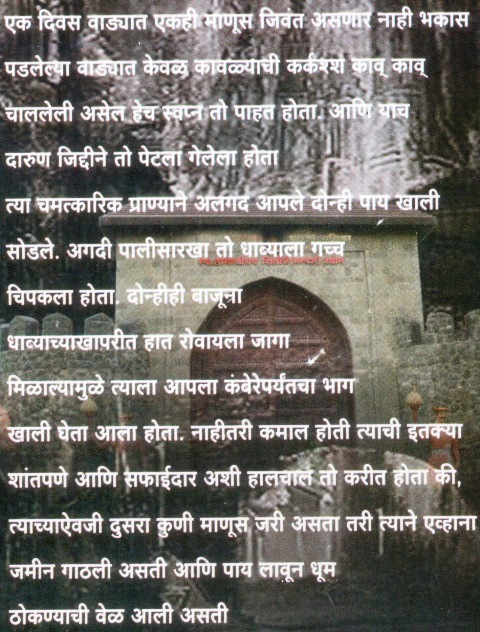 एक दिवस वाड्यात एकही माणूस जिवंत असणार नाही भकास
पडलेल्या वाड्यात केवळ कावळ्याची कर्कश्श काव् काव्
चाललेली असेल हेच स्वप्न तो पाहत होता. आणि याच
दारुण जिद्दीने तो पेटला गेलेला होता
त्या चमत्कारिक प्राण्याने अलगद आपले दोन्ही पाय खाली
सोडले. अगदी पालीसारखा तो धाब्याला गच्च
चिपकला होता. दोन्हीही बाजूना
धाब्याच्याखापरीत हात रोवायला जागा
मिळाल्यामुळे त्याला आपला कंबेरेपर्यंतचा भाग
खाली घेता आला होता. नाहीतरी कमाल होती त्याची इतक्या
शांतपणे आणि सफाईदार अशी हालचाल तो करीत होता की,
त्याच्याऐवजी दुसरा कुणी माणूस जरी असता तरी त्याने एव्हाना
जमीन गाठली असती आणि पाय लावून धूम
ठोकण्याची वेळ आली असती